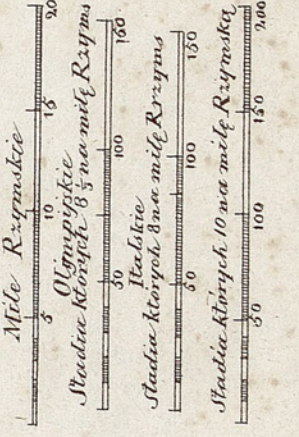 Mile Rzymskie
5 10 15 20
Olympyskie
Stadia ktorych 8 1/3 na milę Rzyms
50 100 160
Italskie
Stadia ktorych 8 na milę Rrzyms
50 100 150
Stadia których 10 na milę Rzymską
50 100 150 200